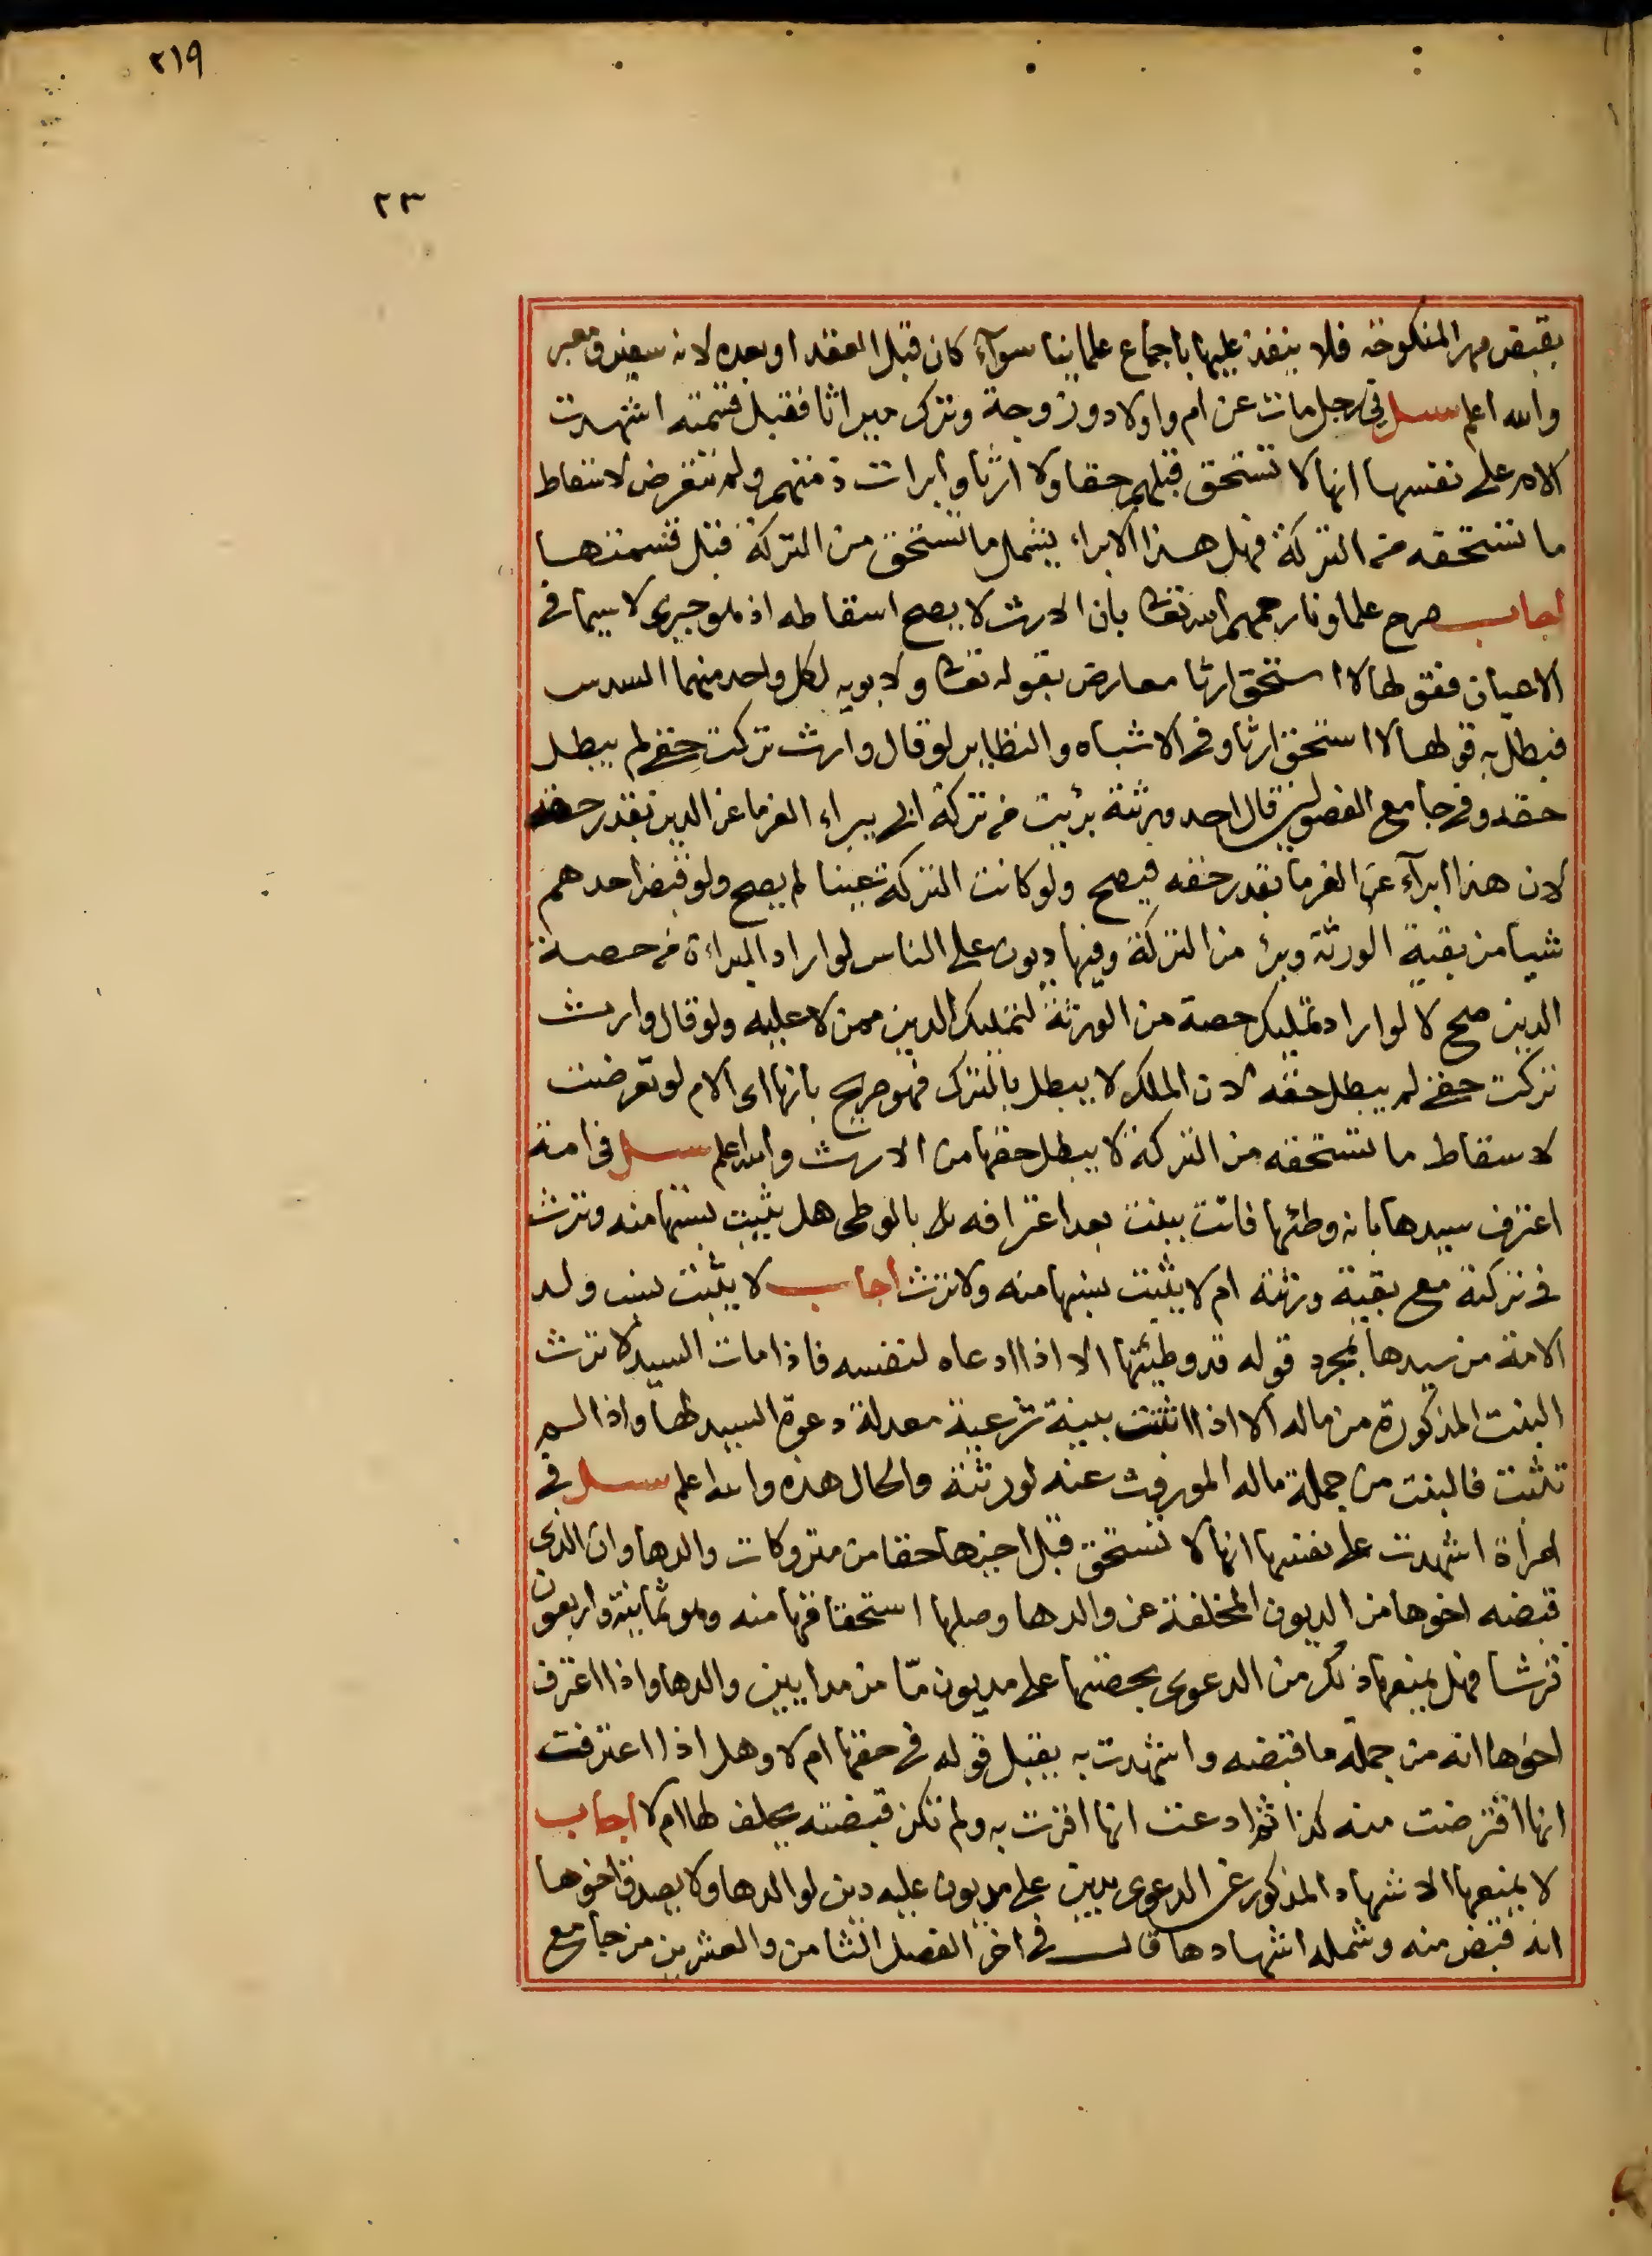 ٢١٩
٢٣
بقبض مهر المنكوحة فلا ينفذ عليها باجماع علمائنا سوآء كان قبل العقد او بعده لانه سفير ومعبر
والله اعلم سىل في رجل مات عن ام واولاد وزوجة وترك ميراثا فقبل قسمته اشهدت
الام على نفسها انها لا تستحق قبلهم حقا ولا ارثا وابرات ذمتهم ولم تتعرض لاسقاط
ما تستحقه من التركة فهل هذا الابراء يشمل ما تستحق من التركة قبل قسمتها
اجاب صرح علماونا رحمهم الله تعالى بان الارث لا يصح اسقاطه اذ هو جبرى لا سيما فى
الاعيان فقولها لا استحق ارثا معارض بقوله تعالى ولابويه لكل واحد منهما السدس
فبطل به قولها لا استحق ارثا وفى الاشباه والنظاير لو قال وارث تركت حقى لم يبطل
حقه وفى جامع الفصولين قال احد ورثته بريت من تركة ابى يبراء الغرما عن الدين بقدر حقه
لان هذا ابرآء عن الغرما بقدر حقه فيصح ولو كانت التركة عينا لم يصح ولو قبض احدهم
شيا من بقية الورثة وبرئ من التركة وفيها ديون على الناس لو اراد البراءة من حصة
الدين صح لا لو اراد تمليك حصة من الورثة لتمليك الدين ممن لا عليه ولو قال وارث
تركت حقى لم يبطل حقه لان الملك لا يبطل بالترك فهو صريح بانها اى الام لو تعرضت
لاسقاط ما تستحقه من التركة لا يبطل حقها من الارث والله اعلم سىل فى امة
اعترف سيدها بانه وطئها فاتت ببنت بعد اعترافه بالوطى هل يثبت نسبها منه وترث
فى تركته مع بقية ورثته ام لا يثبت نسبها منه ولا ترث اجاب لا يثبت نسب ولد
الامة من سيدها بمجرد قوله قد وطيئتها الا اذا ادعاه لنفسه فاذا مات السيد لا ترث
البنت المذكورة من ماله الا اذا اثبتت ببينة شرعية معدلة دعوة السيد لها واذا لم
تثبت فالبنت من جملة ماله الموروث عنه لورثته والحال هذه والله اعلم سىل فى
امراة اشهدت على نفسها انها لا تستحق قبل اخيها حقا من متروكات والدها وان الذى
قبضه اخوها من الديون المخلفة عن والدها وصلها استحقاقها منه وهو ثمانية واربعون
قرشا فهل يمنعها ذكر من الدعوى بحصتها على مديون ما من مدايين والدها واذا اعترف
اخوها انه من جملة ما قبضه واشهدت به يقبل قوله فى حقها ام لا وهل اذا اعترفت
انها اقترضت منه كذا ثم ادعت انها اقرت به ولم تكن قبضته يحلف لها ام لا اجاب
لا يمنعها الاشهاد المذكور عن الدعوى بدين على مديون عليه دين لوالدها ولا يصدق اخوها
انه قبض منه وشمله اشهادها قال فى اخر الفصل الثامن والعشرين من جامع